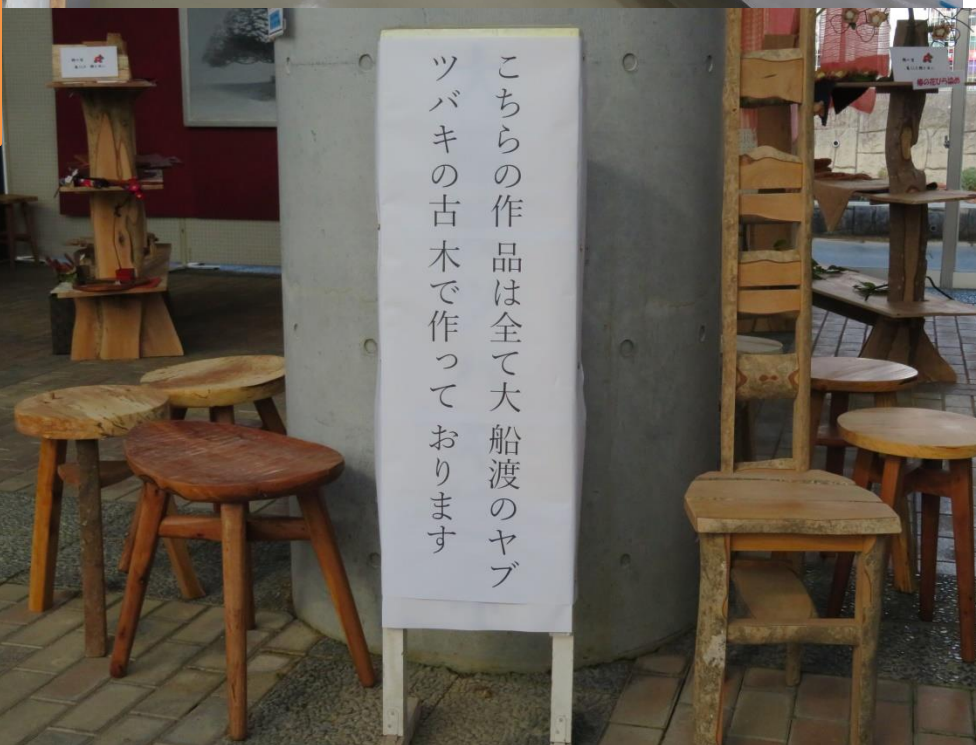 こちらの作品は全て大船渡のヤブ
ツバキの古木で作っております